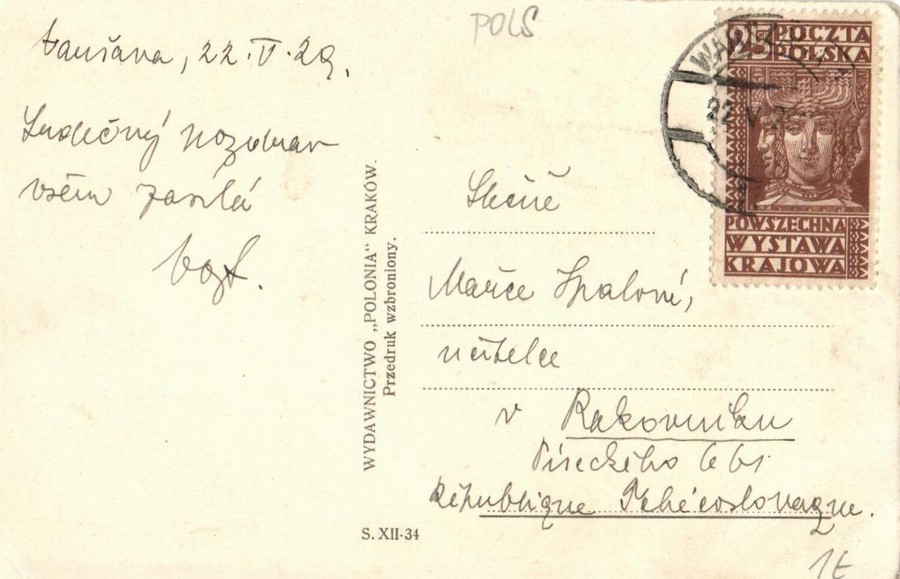 22.V.29.
Srdečný pozdrav
všem zasílá
POLS
WYDAWNICTWO „POLONIA“ KRAKÓW.
Przedruk wzbroniony.
S. XII-34
25 POCZTA
POLSKA
POWSZECHNA
WYSTAWA
KRAJOWA
22 V
Slečně
Mařce Spalové,
učitelce
v Rakovníku
République Tchécoslovaque.